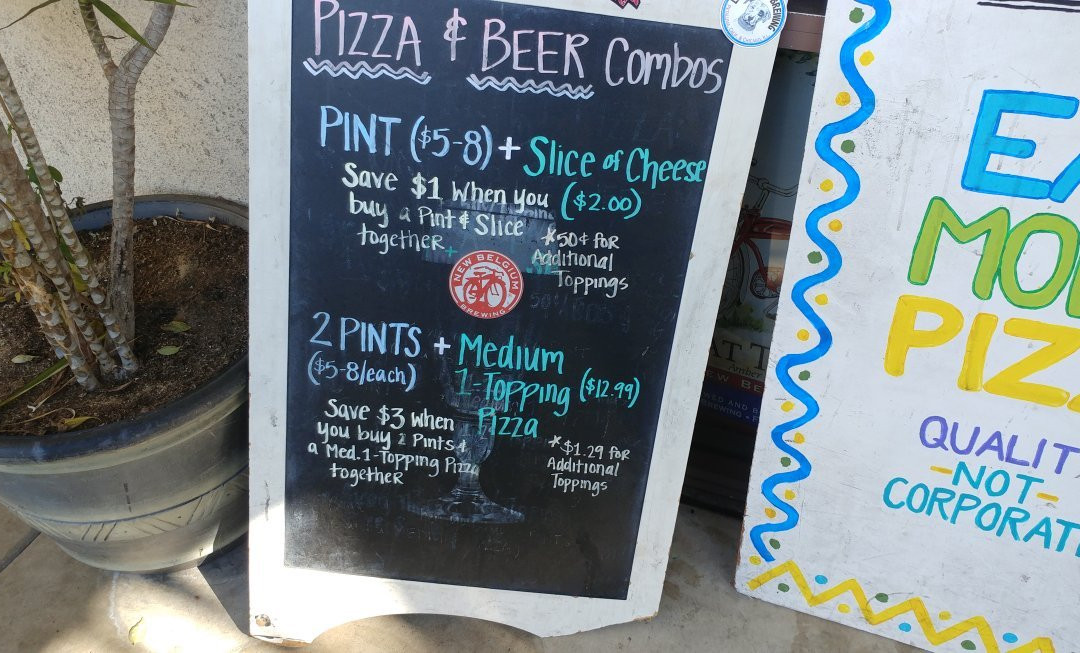 PIZZA & BEER Combos
PINT ($5-8) + Slice of Cheese
($2.00)
Save $1 when you
buy a Pint & Slice
together
*50¢ for
Additional
Toppings
NEW BELGIUM
BREWING
2 PINTS + Medium
($5-8/each)
1-Topping ($12.99)
Pizza
Save $3 when
you buy 2 Pints &
a Med. 1-Topping Pizza
together
*$1.29 for
Additional
Toppings
BREWING
QUALIT
-NOT-
CORPORAT
PIZ